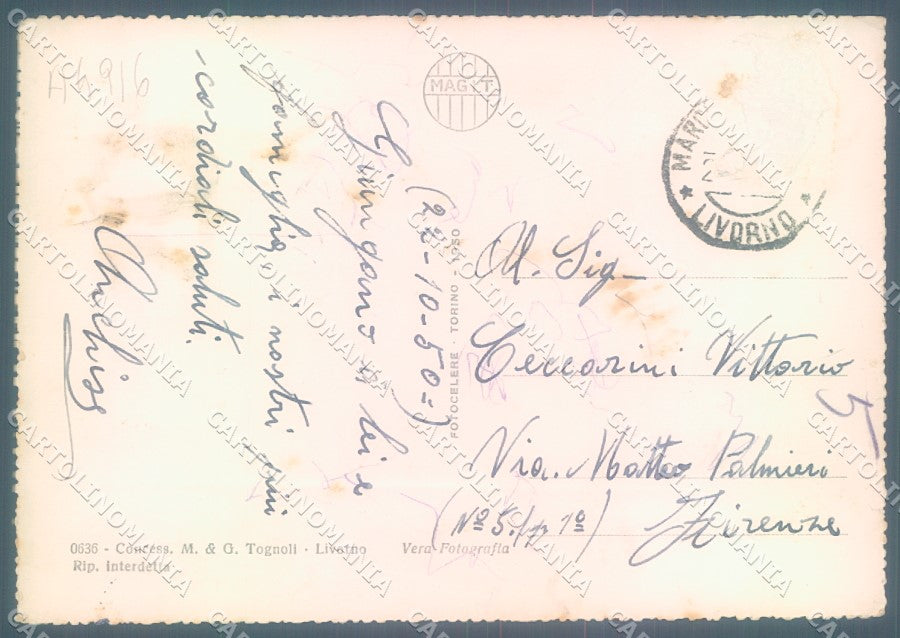 44916
MAGYT
(22-10-50=)
Giungano a lei e
famiglia i nostri più
cordiali saluti.
FOTOCELERE · TORINO - 1950
LIVORNO
Al. Sig-
Ceccarini Vittorio
5
Via. Matteo Palmieri
(Nº 5. /p 1º)
Firenze
0636 - Concess. M. & G. Tognoli · Livorno
Vera Fotografia
Rip. interdetta
CARTOLINOMANIA